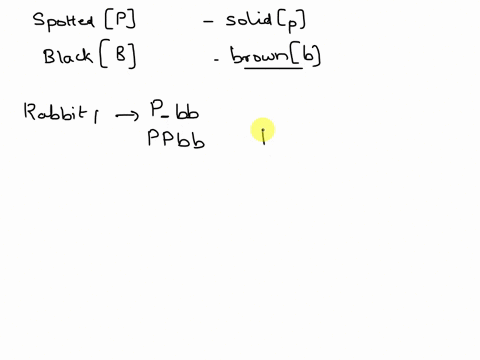 Spotted [P] - solid [p]
Black [B] - brown [b]
Rabbit 1 → P_ bb
PPbb